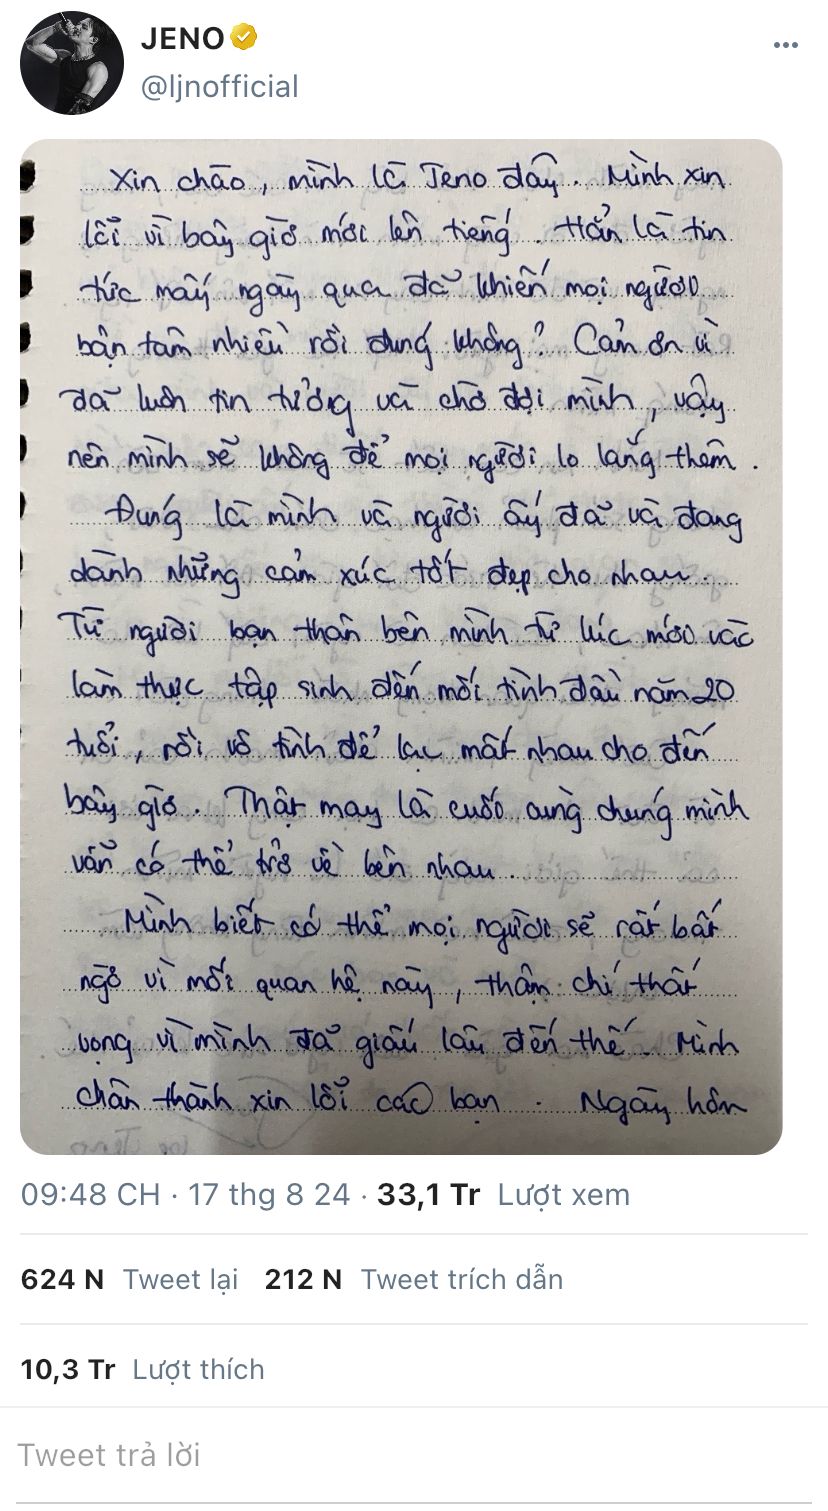 JENO
@ljnofficial
Xin chào, mình là Jeno đây. Mình xin
lỗi vì bây giờ mới lên tiếng. Hẳn là tin
tức mấy ngày qua đã khiến mọi người
bận tâm nhiều rồi đúng không? Cảm ơn vì
đã luôn tin tưởng và chờ đợi mình, vậy
nên mình sẽ không để mọi người lo lắng thêm.
Đúng là mình và người ấy đã và đang
dành những cảm xúc tốt đẹp cho nhau.
Từ người bạn thân bên mình từ lúc mới vào
làm thực tập sinh đến mối tình đầu năm 20
tuổi, rồi vô tình để lạc mất nhau cho đến
bây giờ. Thật may là cuối cùng chúng mình
vẫn có thể trở về bên nhau.
Mình biết có thể mọi người sẽ rất bất
ngờ vì mối quan hệ này, thậm chí thất
vọng vì mình đã giấu lâu đến thế. Mình
chân thành xin lỗi các bạn. Ngày hôm
09:48 CH · 17 thg 8 24 · 33,1 Tr Lượt xem
624 N Tweet lại 212 N Tweet trích dẫn
10,3 Tr Lượt thích
Tweet trả lời